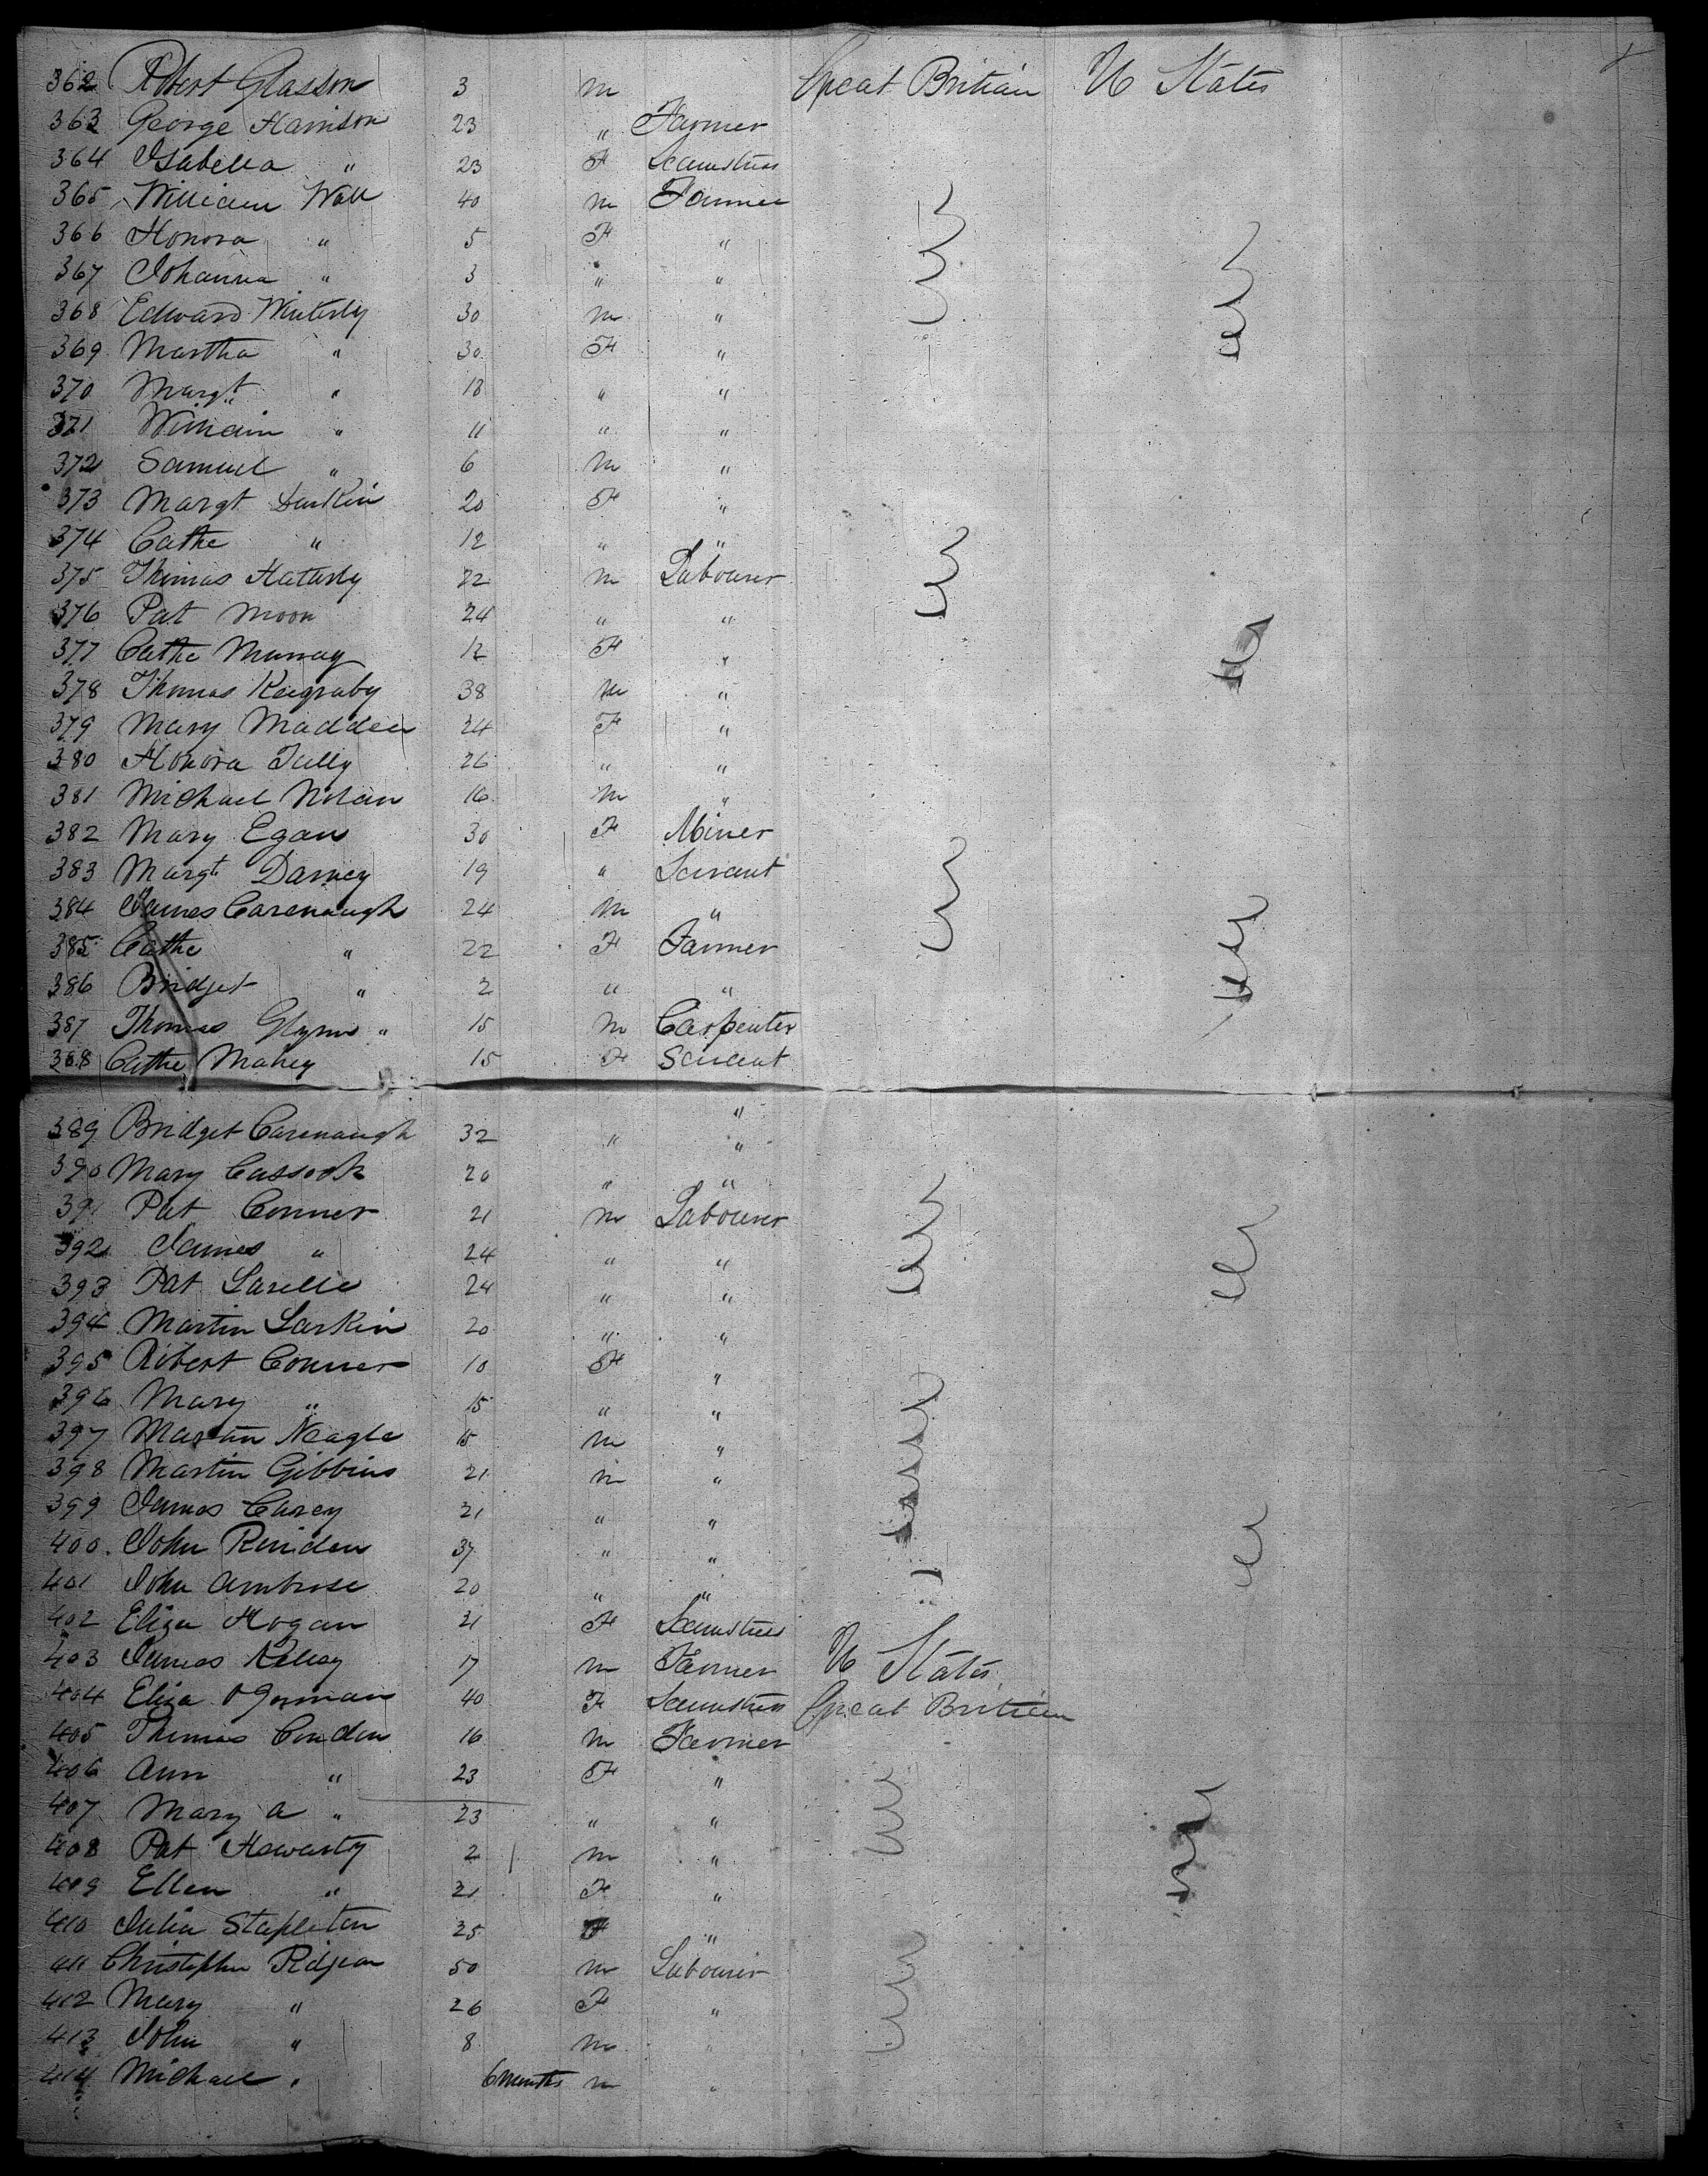 362 Robert Glasson 3 m Great Britian U States
363 George Harrison 23 " Farmer
364 Isabella " 23 F Seamstress
365 William Wall 40 m Farmer
366 Honora " 5 F "
367 Johanna " 3 " "
368 Edward Winterly 30 m "
369 Martha " 30 F "
370 Margt " 18 " "
371 William " 11 " "
372 Samuel " 6 m "
373 Margt Larkin 20 F "
374 Cathe " 12 " "
375 Thomas Hatterly 22 m Labourer
376 Pat Moon 24 " "
377 Cathe Murray 12 F "
378 Thomas 38 m "
379 Mary Madden 24 F "
380 Honora Tully 26 " "
381 Michael Nolan 16 m "
382 Mary Egan 30 F Miner
383 Margt Darney 19 " Servant
384 James Cavenaugh 24 m "
385 Cathe " 22 F Farmer
386 Bridget " 2 " "
387 Thomas Glynn " 15 m Carpenter
388 Cathe Mahey 15 F Servant
"
389 Bridget Cavenaugh 32 " "
390 Mary Cassook 20 " "
391 Pat Conner 21 m Labourer
392 James " 24 " "
393 Pat Lavelle 24 " "
394 Martin Larkin 20 " "
395 Robert Conner 10 F "
396 Mary " 15 " "
397 Martin Neagle 15 m "
398 Martin Gibbins 21 m "
399 James Carey 21 " "
400 John 37 " "
401 John Ambrose 20 " "
402 Eliza Hogan 21 F Seamstress
403 James Kelley 17 m Farmer U States
404 Eliza O Gorman 40 F Seamstress Great Britian
405 Thomas Condon 16 m Farmer
406 Ann " 23 F "
407 Mary A " 23 " "
408 Pat 2 m "
409 Ellen " 21 F "
410 Julia Stapleton 25 F "
411 Christopher 50 m Labourer
412 Mary " 26 F "
413 John " 8 m "
414 Michael " 6 months m "